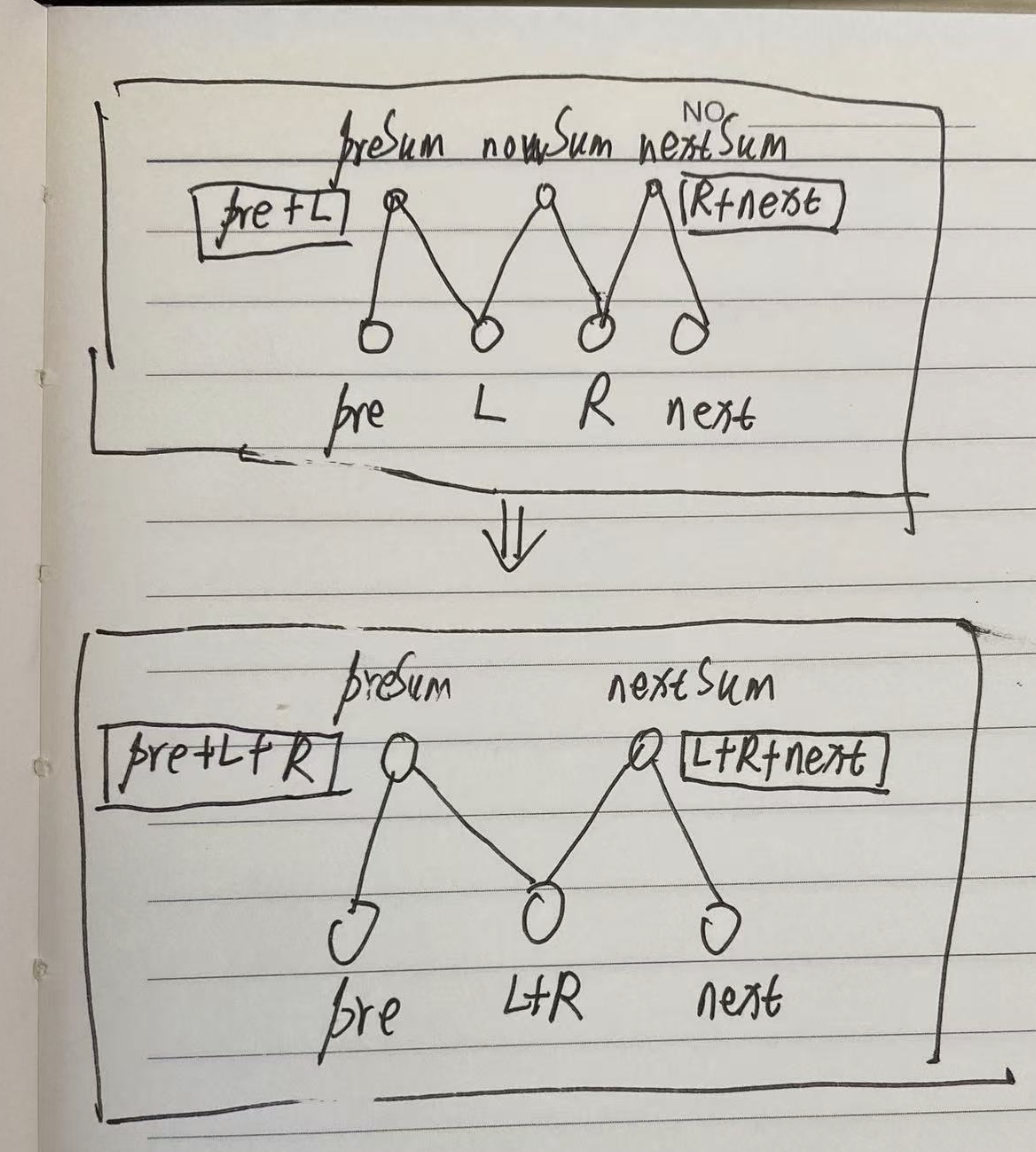 NO
preSum nowSum nextSum
pre+L R+next
pre L R next
preSum nextSum
pre+L+R L+R+next
pre L+R next